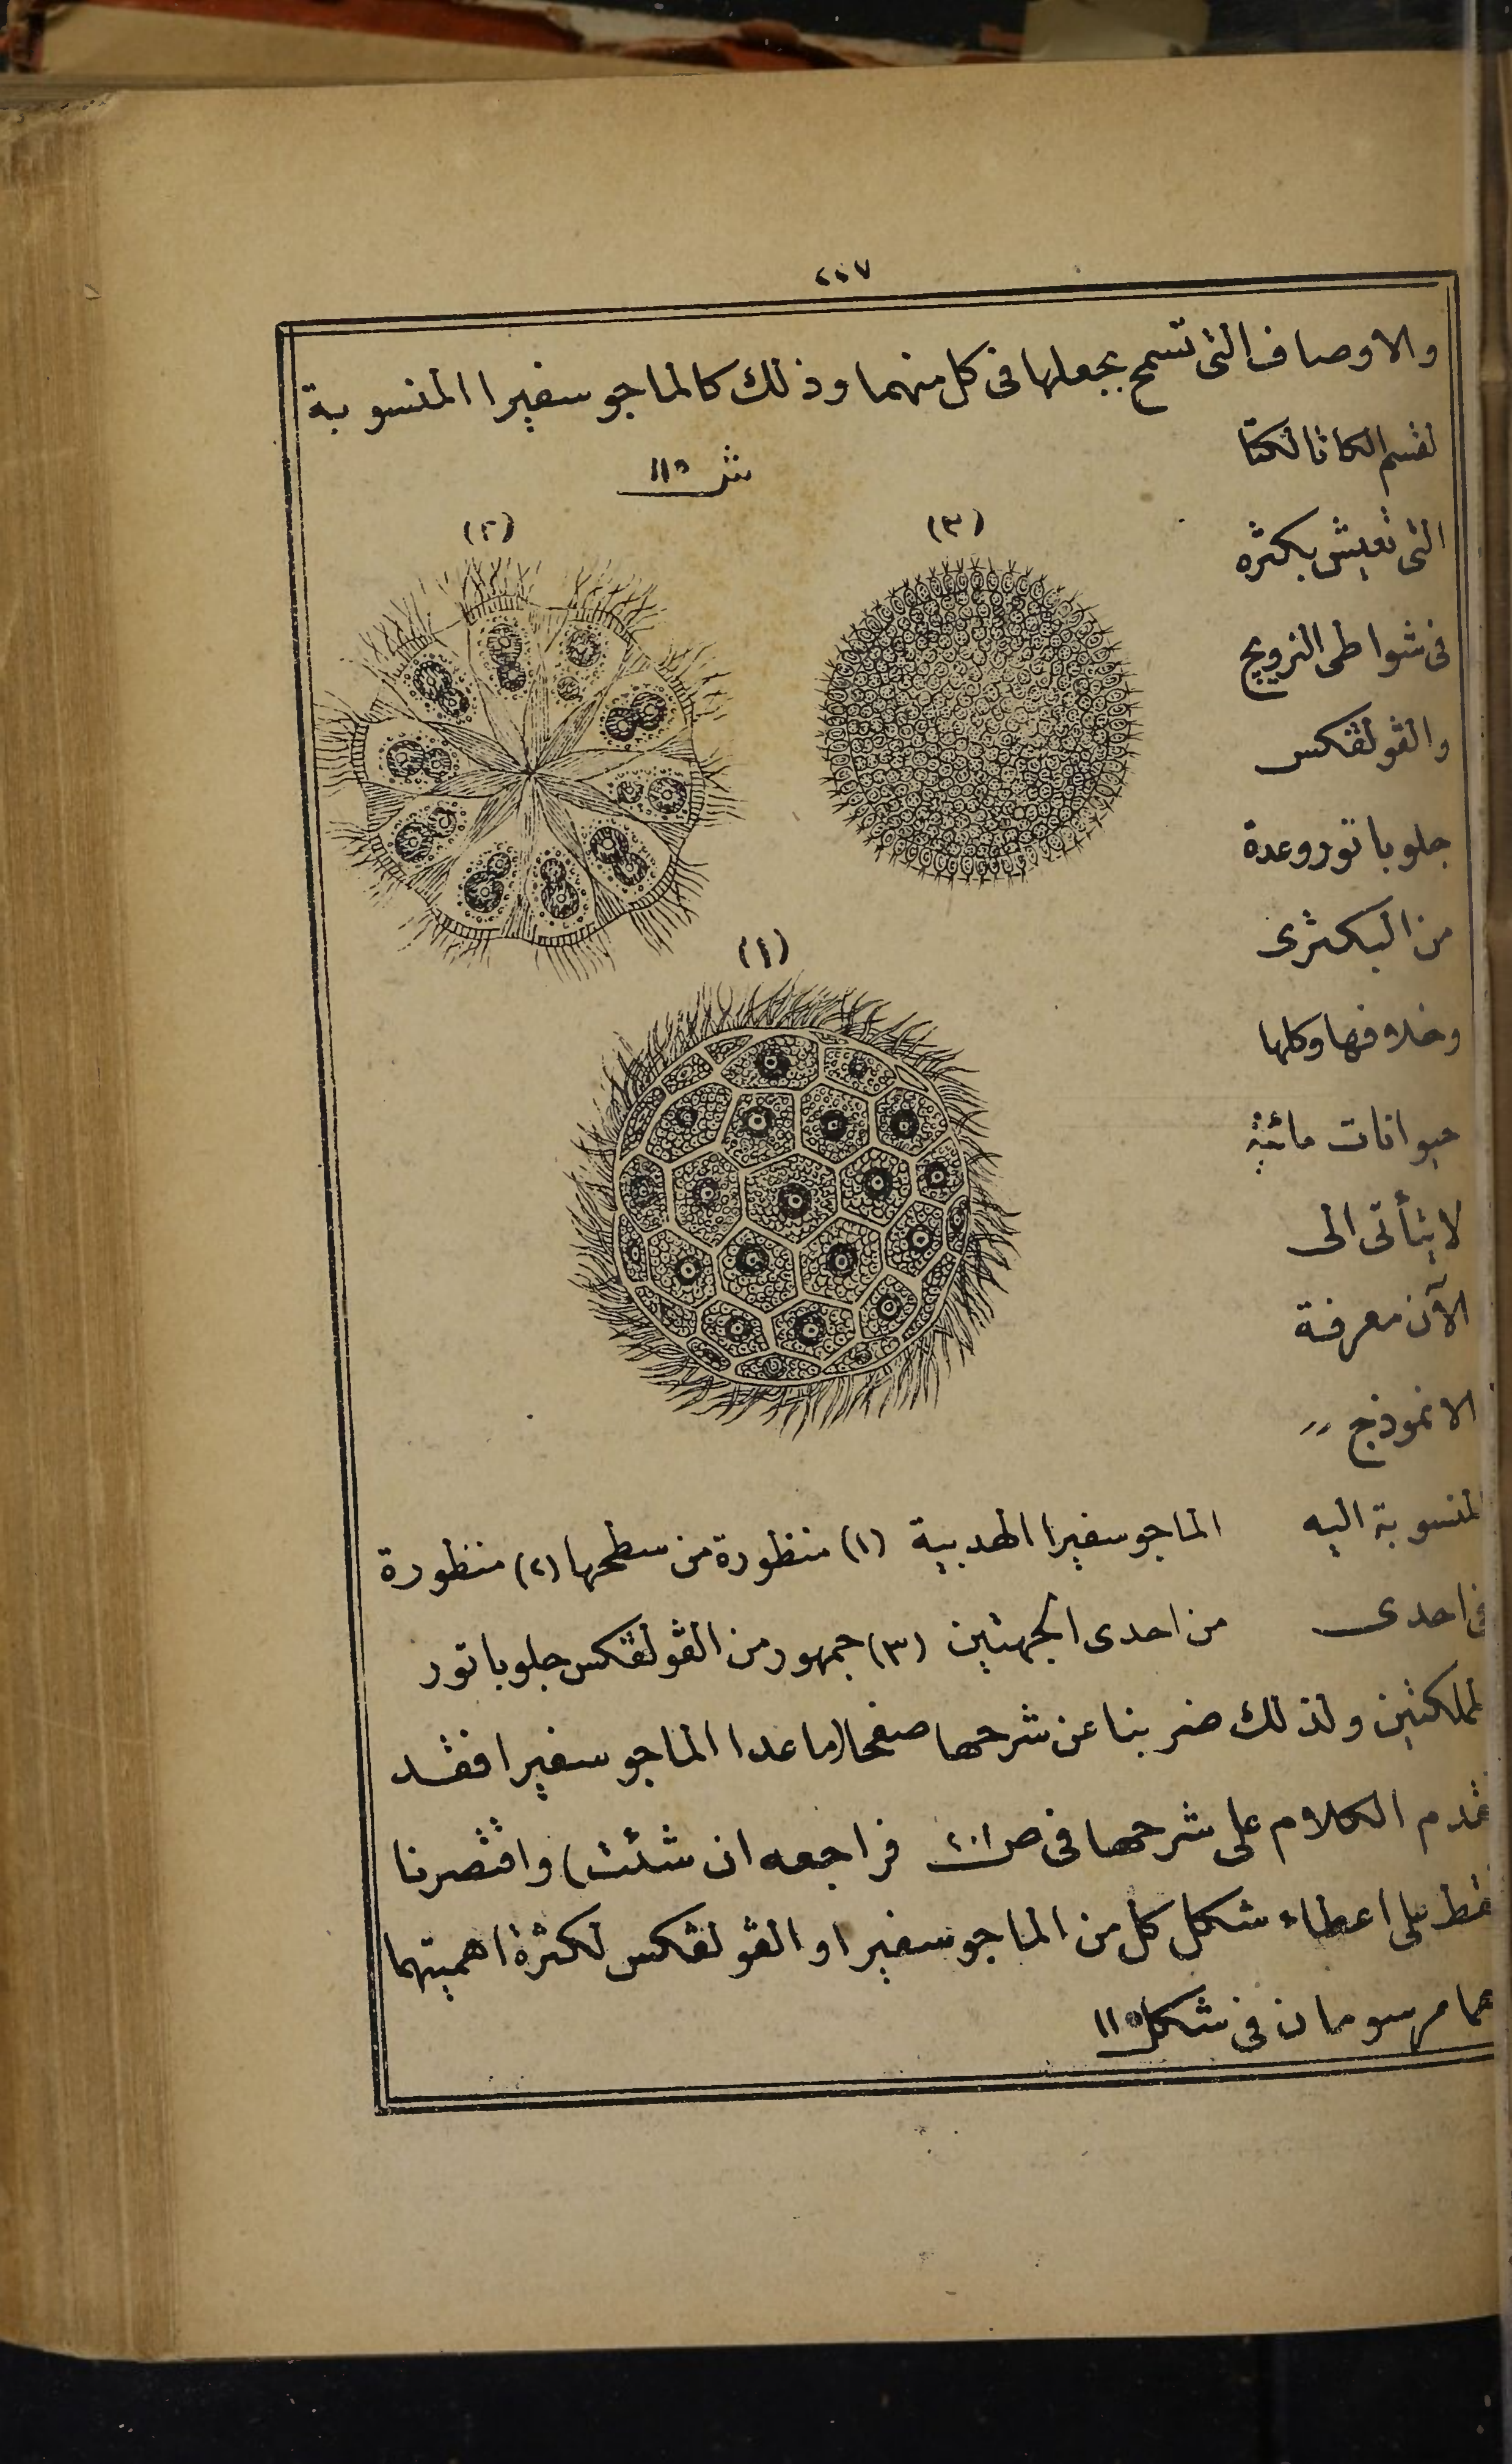 ٢٠٧
والاوصاف التى تسمح بجعلها فى كل منهما وذلك كالماجوسفيرا المنسوبة
لقسم الكاتالكتا
ش ١١٥
(٢)
(٣)
التى تعيش بكثره
فى شواطى النرويج
والڤولڤكس
جلوباتور وعدة
من البكثرى
وخلافها وكلها
حيوانات مائية
لا يتأتى الى
الآن معرفة
الانموذج
(١)
المنسوبة اليه
الماجوسفيرا الهدبية (١) منظورة من سطحها (٢) منظورة
فى احدى
من احدى الجهتين (٣) جمهور من الڤولڤكس جلوباتور
المملكتين ولذلك ضربنا عن شرحها صفحا (ما عدا الماجوسفيرا فقد
تقدم الكلام على شرحها فى ص ٢٠١ فراجعه ان شئت) واقتصرنا
فقط على اعطاء شكل كل من الماجوسفيرا والڤولڤكس لكثرة اهميتهما
هما مرسومان فى شكل ١١٥